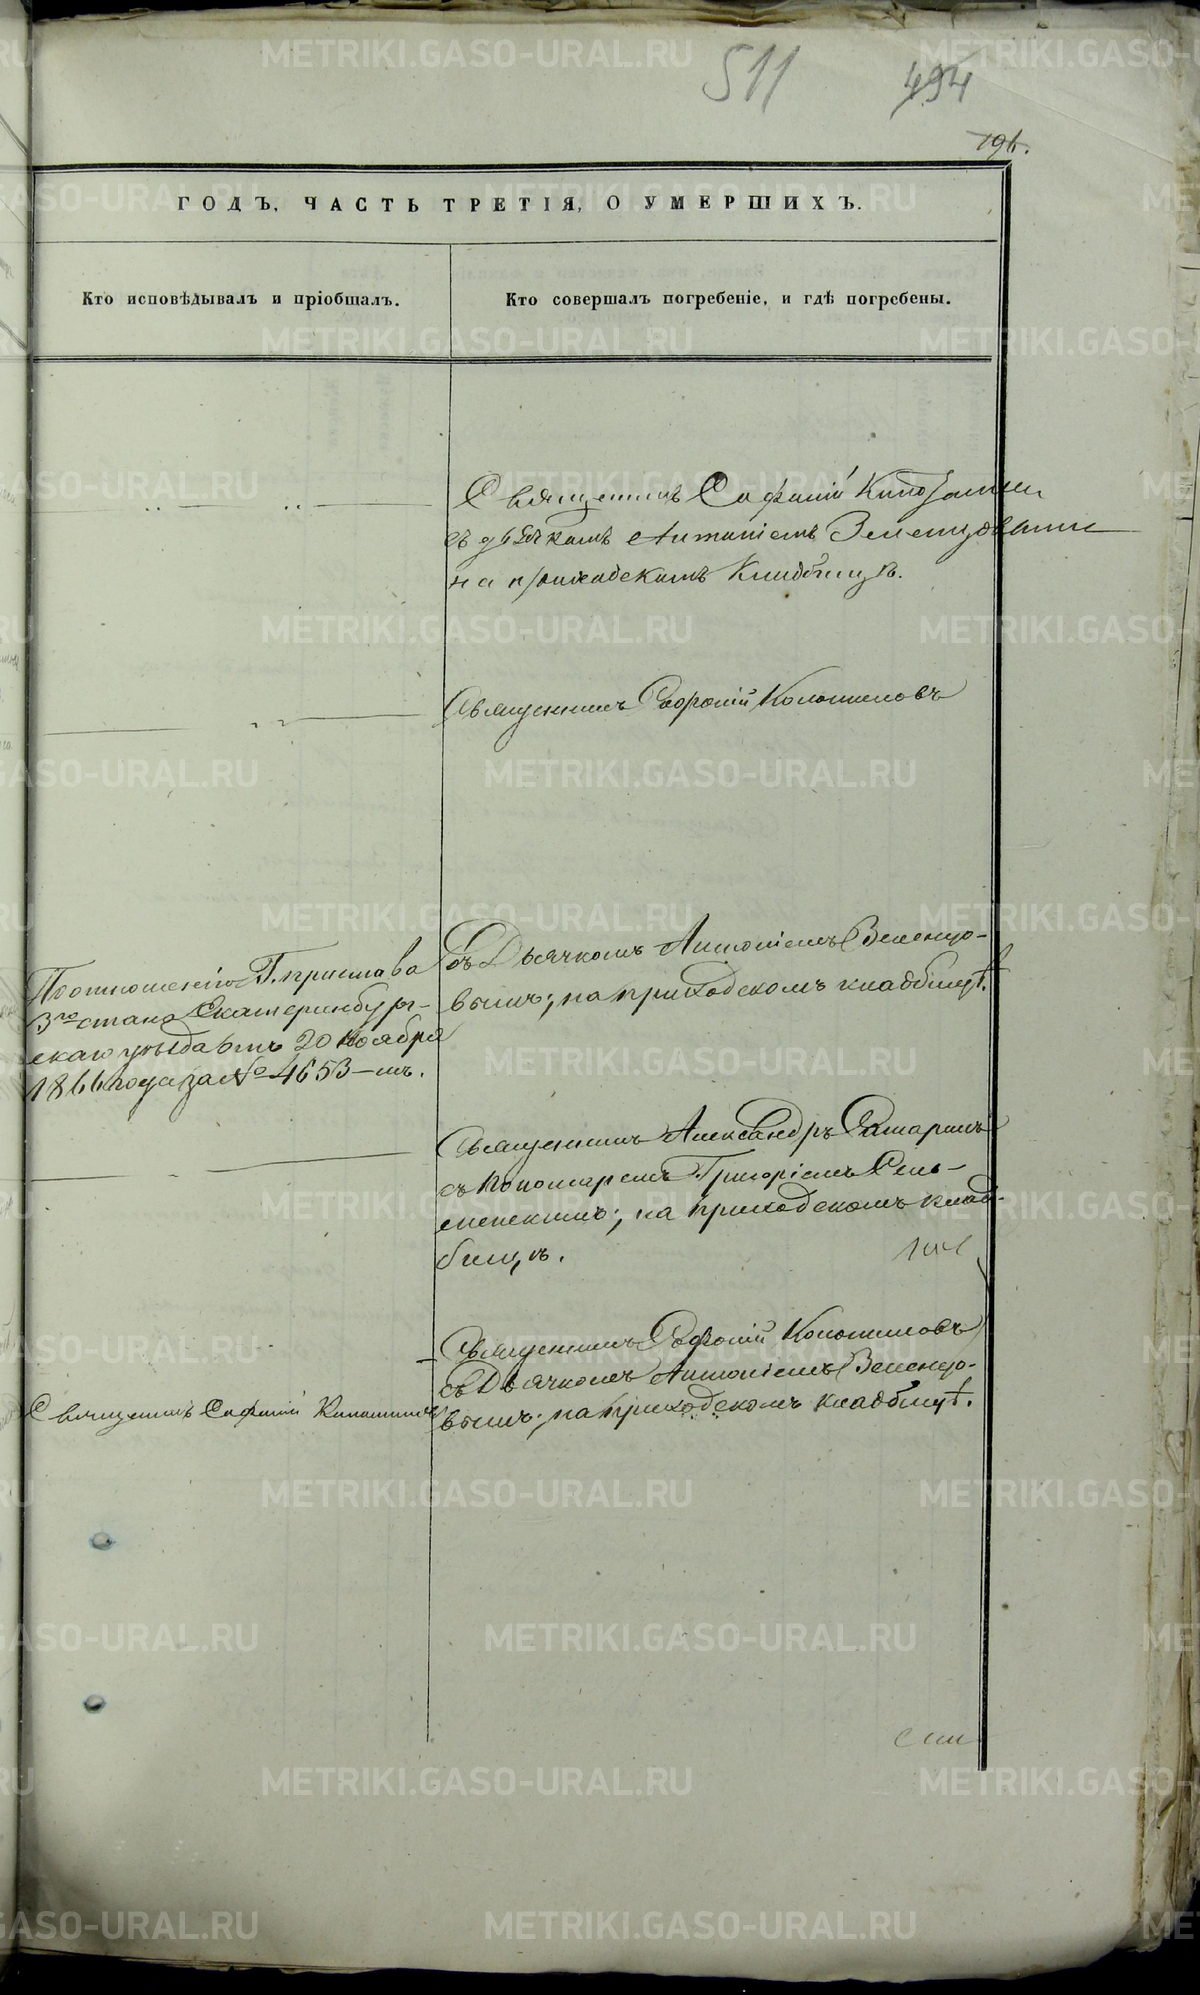 511
494
196.
ГОДЪ, ЧАСТЬ ТРЕТІЯ, О УМЕРШИХЪ.
Кто исповѣдывалъ и пріобщалъ.
Кто совершалъ погребеніе, и гдѣ погребены.
Священникъ Софоній
съ дьячкомъ Антоніемъ Зеленцовымъ
на приходскомъ кладбищѣ.
Священникъ Софоній Колотиловъ
съ Дьячкомъ Антоніемъ Зеленцо-
вымъ; на приходскомъ кладбищѣ.
По отношенію Г. пристава
3го стана Екатеринбург-
скаго уѣзда отъ 20 Ноября
1866 года за № 4653-мъ.
Священникъ Александръ
съ Пономаремъ Григоріемъ
на приходскомъ клад-
бищѣ.
Священникъ Софоній Колотиловъ
съ Дьячкомъ Антоніемъ Зеленцо-
вымъ; на приходскомъ кладбищѣ.
Священникъ Софоній
METRIKI.GASO-URAL.RU